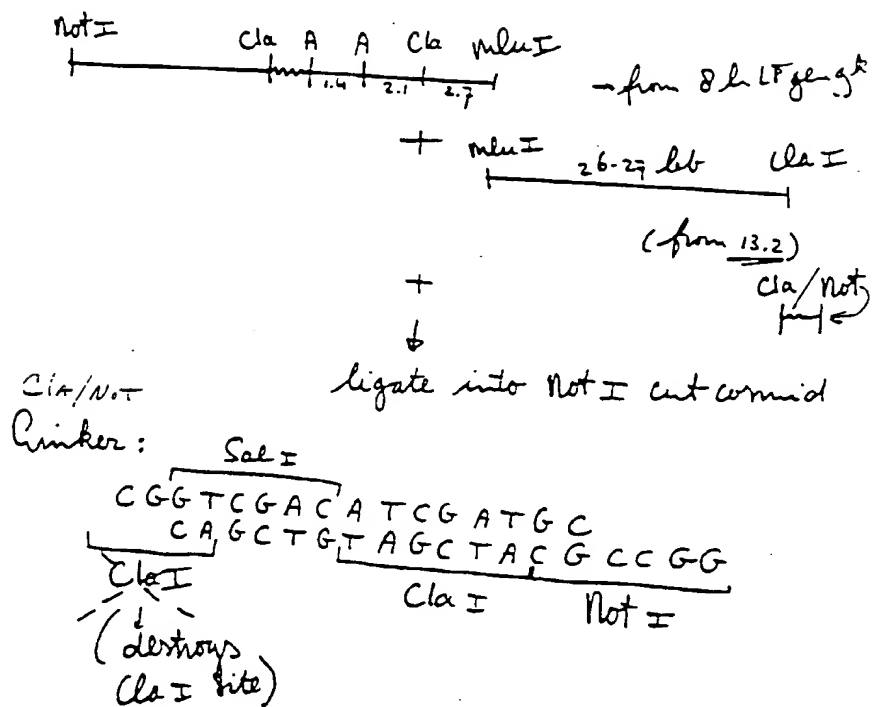 Not I Cla A A Cla Mlu I
1.4 2.1 2.7
→ from 8
+ Mlu I 26-27 kb Cla I
(from 13.2)
+ Cla/Not
ligate into Not I cut cosmid
Cla/Not
Linker:
Sal I
C G G T C G A C A T C G A T G C
C A G C T G T A G C T A C G C C G G
Cla I Cla I Not I
(destroys
Cla I site)